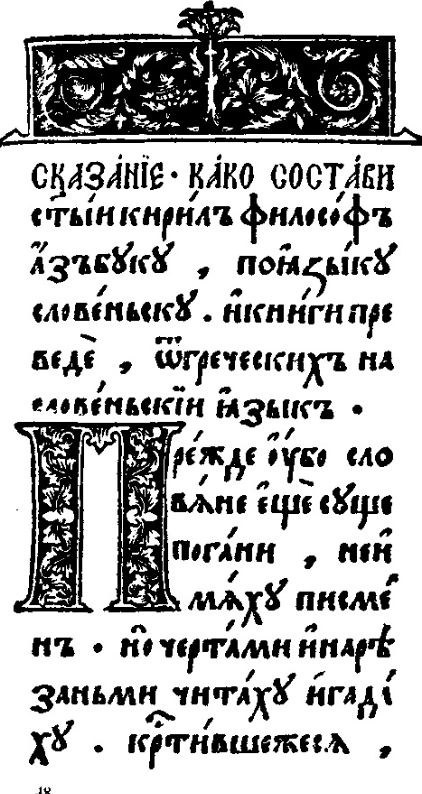 СКАЗА́НЇЕ · КА́КО СОСТА́ВИ
ст҃ы́и кири́лъ філосо́фъ
а҆́зъбꙋкꙋ , поꙗ҆зы́кꙋ
слове́ньскꙋ . и҆кни́ги пре
ведѐ , ѿгре́ческихъ на
слове́ньскїи ꙗ҆зыкъ .
Пре́жде ᲂу҆́бо сло
вѧ́не є҆щѐ сꙋще
пога́ни , неи҆
мѧ́хꙋ писме́
нъ . но̀ черта́ми и҆нарѣ́
заньми чита́хꙋ и҆гада́
хꙋ . кр҃ти́вшежесѧ ,
18